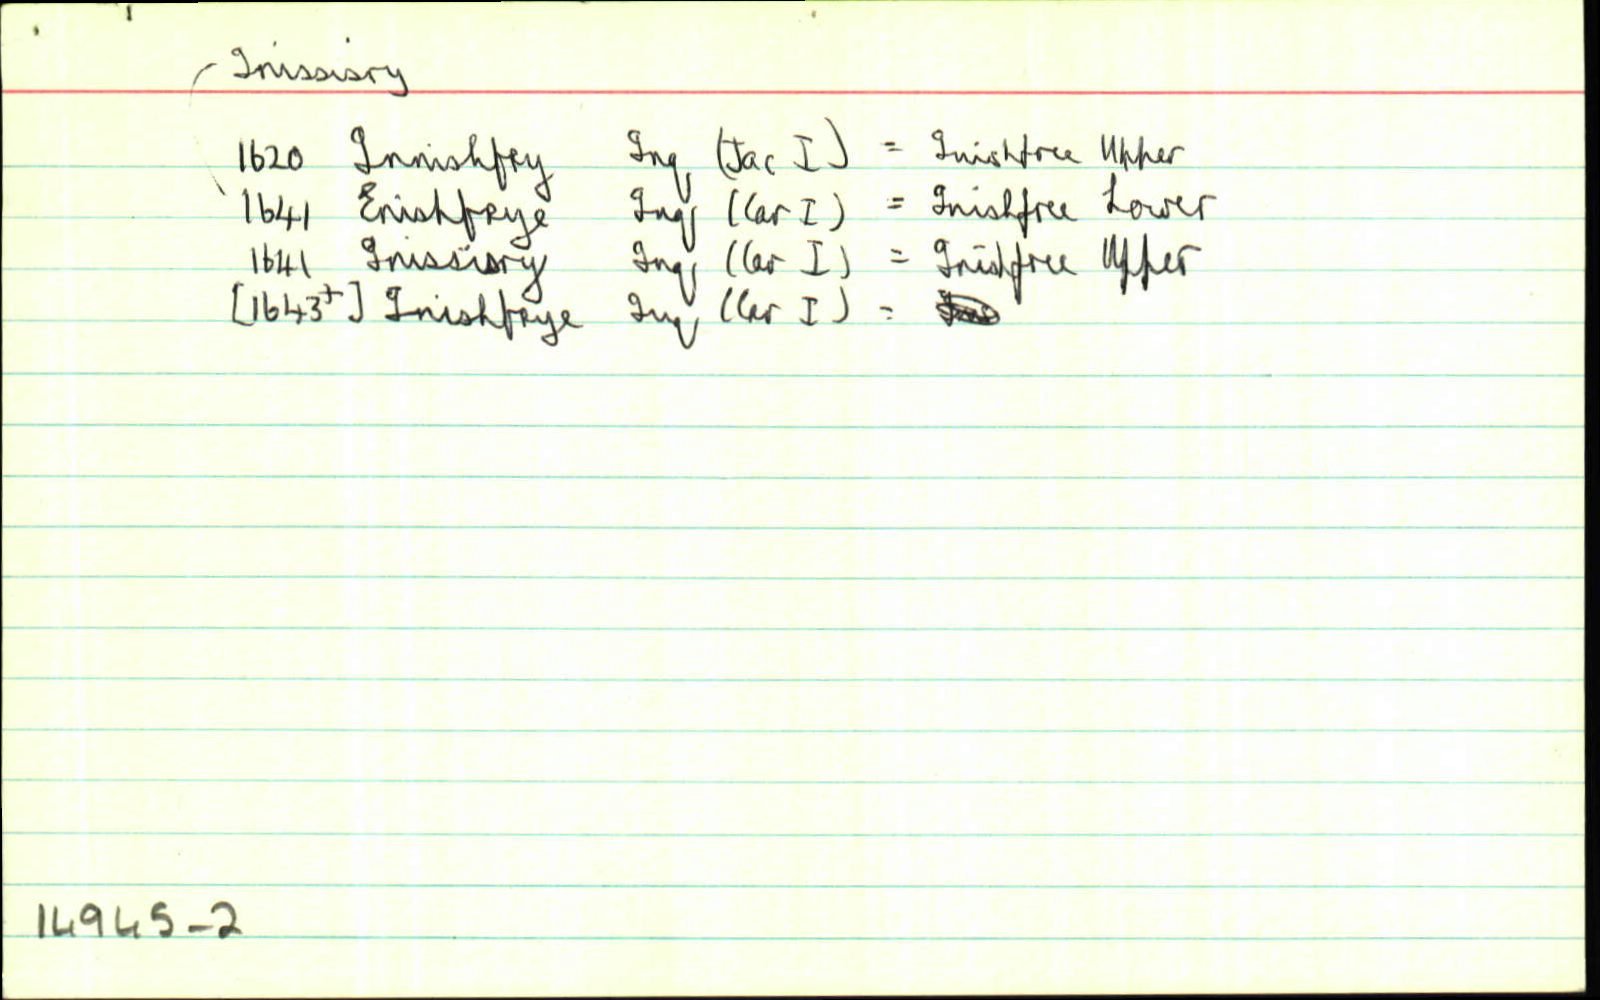 Inissisry
1620 Innishfry Inq (Jac I) = Inishfree Upper
1641 Enishfreye Inq (Car I) = Inishfree Lower
1641 Inissisry Inq (Car I) = Inishfree Upper
[1643±] Inishfrye Inq (Car I) =
14945-2